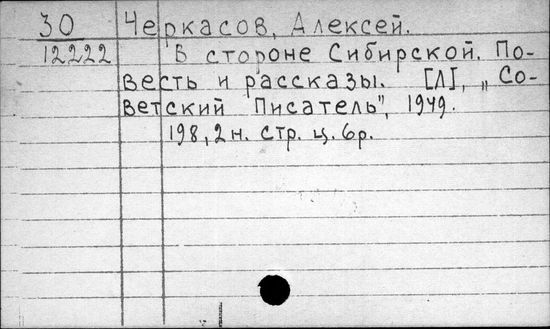 30 Черкасов, Алексей.
12222 В стороне Сибирской. По-
весть и рассказы. [Л], „Со-
ветский Писатель", 1949.
198, 2 н. стр. ц. 6р.